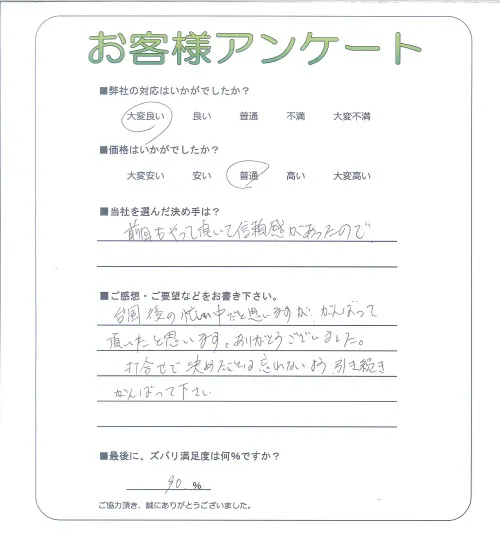 お客様アンケート
■弊社の対応はいかがでしたか？
大変良い 良い 普通 不満 大変不満
■価格はいかがでしたか？
大変安い 安い 普通 高い 大変高い
■当社を選んだ決め手は？
前回もやって頂いて信頼感があったので
■ご感想・ご要望などをお書き下さい。
台風後の忙しい中だと思いますが、がんばって
頂いたと思います。ありがとうございました。
打合せで決めたことは忘れないよう引き続き
がんばって下さい
■最後に、ズバリ満足度は何%ですか？
90.%
ご協力頂き、誠にありがとうございました。